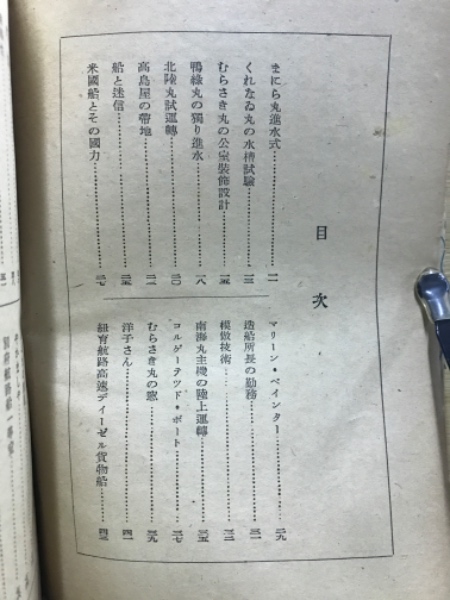 目次
まにら丸進水式……一一
くれなゐ丸の水槽試驗……一三
むらさき丸の公室裝飾設計……一五
鴨綠丸の獨り進水……一八
北陸丸試運轉……二〇
高島屋の帶地……二二
船と迷信……二五
米國船とその國力……二七
マリーン・ペインター……二九
造船所長の勤務……三一
模倣技術……三二
南海丸主機の陸上運轉……三五
コルゲーテツド・ボート……三七
むらさき丸の窓……三九
洋子さん……四一
紐育航路高速デイーゼル貨物船……四三